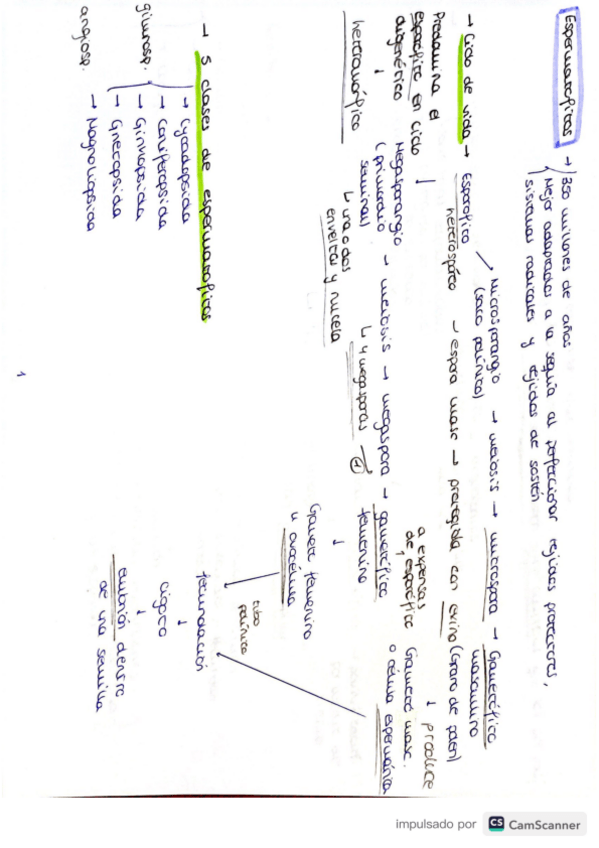 Espermatofitos → 350 millones de años
Mejor adaptados a la sequía al perfeccionar tejidos protectores,
sistemas radicales y tejidos de sostén
→ Ciclo de vida → Esporofito
heterospórico
Predomina el
esporofito en ciclo
digenético
↓
heteromórfico
Microsporangio → meiosis → microspora → Gametófito
(saco polínico)
masculino
– espora masc → protegida con exina (Grano de polen)
↓ produce
Gameto masc.
o célula espermática
↓
Megasporangio → meiosis → megaspora → gametófito
(primordio
seminal)
femenino
a expensas
de esporófito
↳ 4 megasporas → 1
↳ una o dos
envueltas y nucela
↓
Gameto femenino
u ovocélula
tubo
polínico
fecundación
↓
cigoto
↓
embrión dentro
de una semilla
→ 5 clases de espermatofitos
gimnosp.
→ Cycadopsida
→ Coniferopsida
→ Ginkopsida
→ Gnetopsida
angiosp. → Magnoliopsida
1
impulsado por CS CamScanner